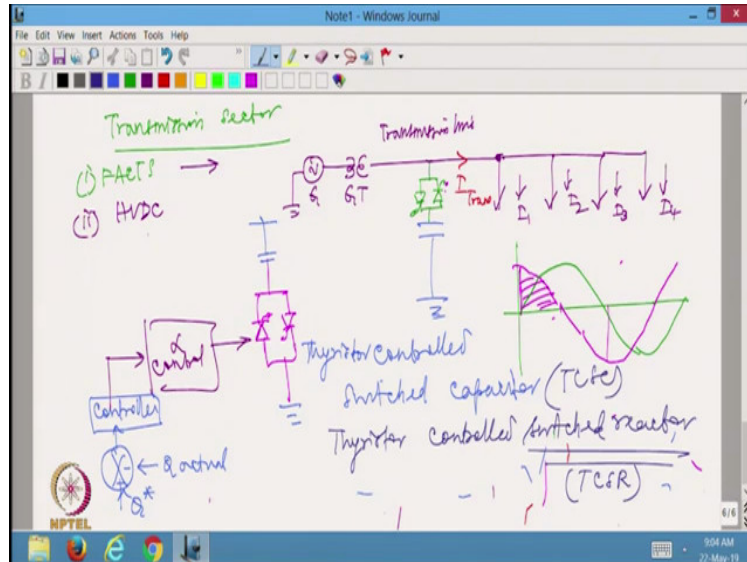 Note1 - Windows Journal
File Edit View Insert Actions Tools Help
B I
Transmission sector
(i) FACTS →
(ii) HVDC
Transmission line
G GT
I Trans
I1 I2 I3 I4
α
control
Controller
← Q actual
Q*
Thyristor controlled
switched capacitor (TCSC)
Thyristor controlled switched reactor
(TCSR)
NPTEL
6/6
9:04 AM
22-May-19